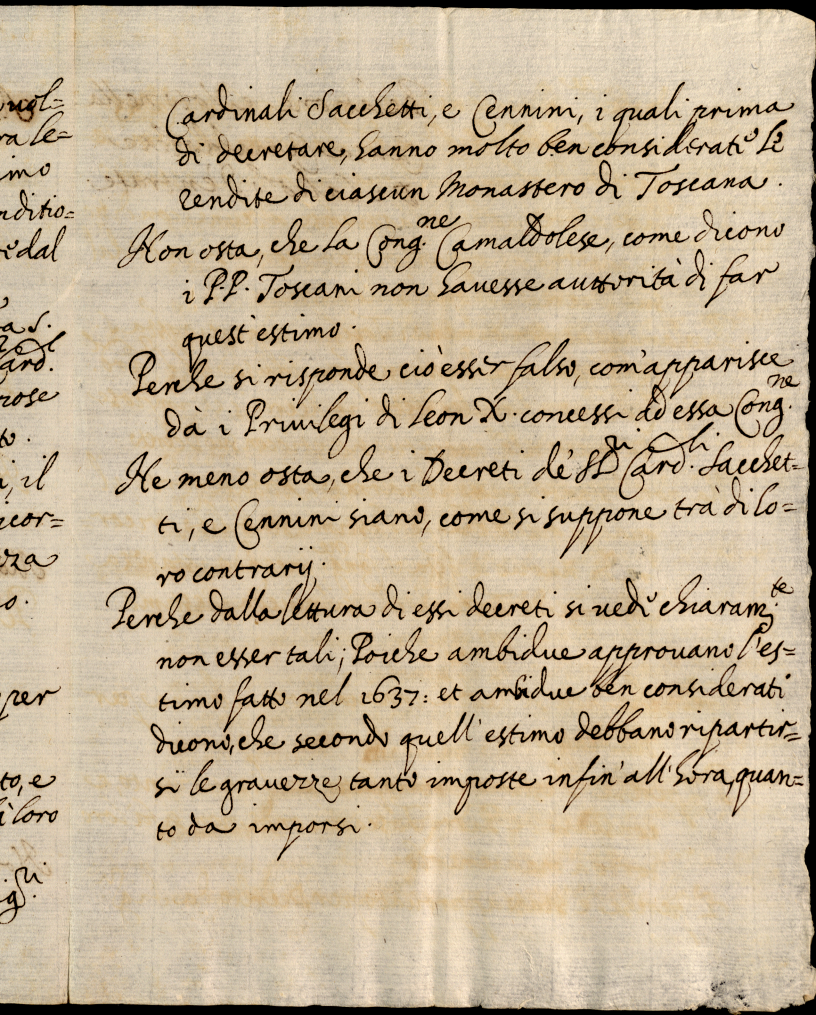 uol=
ra le=
imo
nditio=
dal
a S.
Card.l
pose
to.
i, il
icor=
zza
o.
per
to, e
loro
ig.ri
Cardinali Sacchetti, e Cennini, i quali prima
di decretare, hanno molto ben considerato le
rendite di ciascun Monastero di Toscana.
Non osta, che la Cong.ne Camaldolese, come dicono
i P.P. Toscani non hauesse auttorità di far
quest'estimo.
Perche si risponde ciò esser falso, com'apparisce
dà i Priuilegi di Leon X. concessi ad essa Cong.ne
Ne meno osta, che i Decreti de' SS.ri Card.li Sacchet=
ti, e Cennini siano, come si suppone trà di lo=
ro contrarij.
Perche dalla lettura di essi decreti si uede chiaram.te
non esser tali; Poiche ambidue approuano l'es=
timo fatto nel 1637: et ambidue ben considerati
dicono, che secondo quell'estimo debbano ripartir=
si le grauezze, tanto imposte infin'all'hora, quan=
to da imporsi.